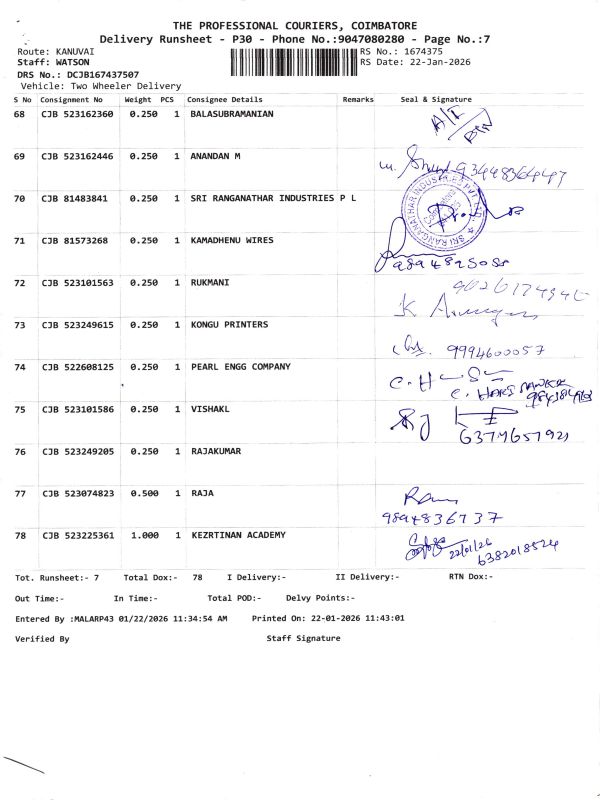 THE PROFESSIONAL COURIERS, COIMBATORE
Delivery Runsheet - P30 - Phone No.:9047080280 - Page No.:7
Route: KANUVAI RS No.: 1674375
Staff: WATSON RS Date: 22-Jan-2026
DRS No.: DCJB167437507
Vehicle: Two Wheeler Delivery
S No Consignment No Weight PCS Consignee Details Remarks Seal & Signature
68 CJB 523162360 0.250 1 BALASUBRAMANIAN
69 CJB 523162446 0.250 1 ANANDAN M
70 CJB 81483841 0.250 1 SRI RANGANATHAR INDUSTRIES P L
SRI RANGANATHAR INDUSTRIES PVT LTD
71 CJB 81573268 0.250 1 KAMADHENU WIRES
72 CJB 523101563 0.250 1 RUKMANI
73 CJB 523249615 0.250 1 KONGU PRINTERS
9994600057
74 CJB 522608125 0.250 1 PEARL ENGG COMPANY
75 CJB 523101586 0.250 1 VISHAKL
6374657921
76 CJB 523249205 0.250 1 RAJAKUMAR
77 CJB 523074823 0.500 1 RAJA
9894836737
78 CJB 523225361 1.000 1 KEZRTINAN ACADEMY
22/01/26
6382018524
Tot. Runsheet:- 7 Total Dox:- 78 I Delivery:- II Delivery:- RTN Dox:-
Out Time:- In Time:- Total POD:- Delvy Points:-
Entered By :MALARP43 01/22/2026 11:34:54 AM Printed On: 22-01-2026 11:43:01
Verified By Staff Signature